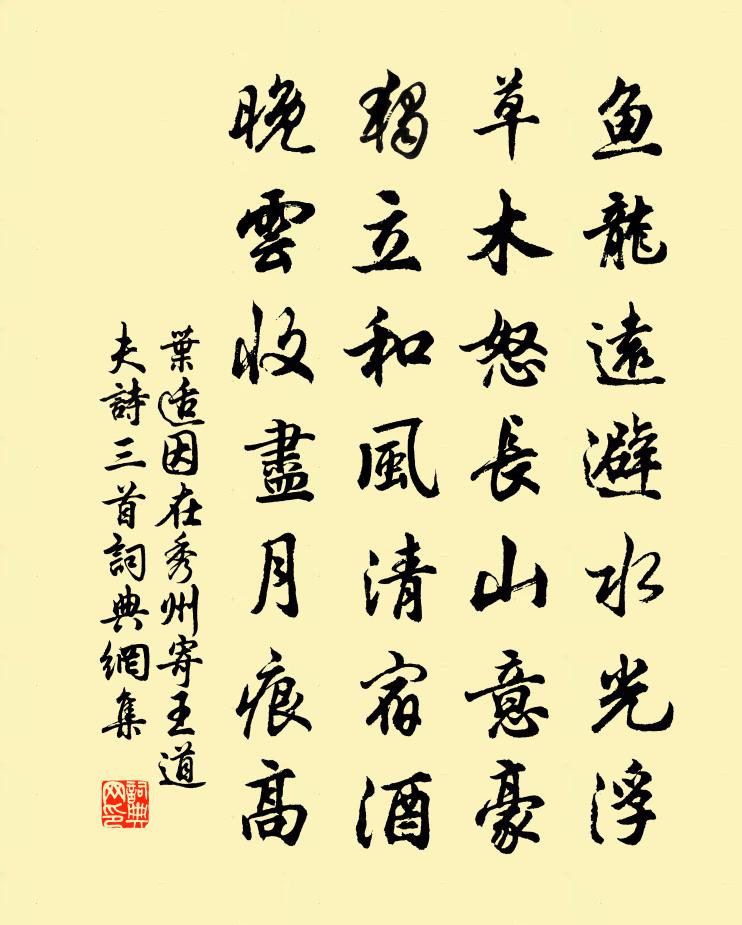 鱼龍遠避水光浮
草木怒長山意豪
獨立和風清宿酒
晚雲收盡月痕高
葉适因在秀州寄王道
夫詩三首詞典網集
詞典網印